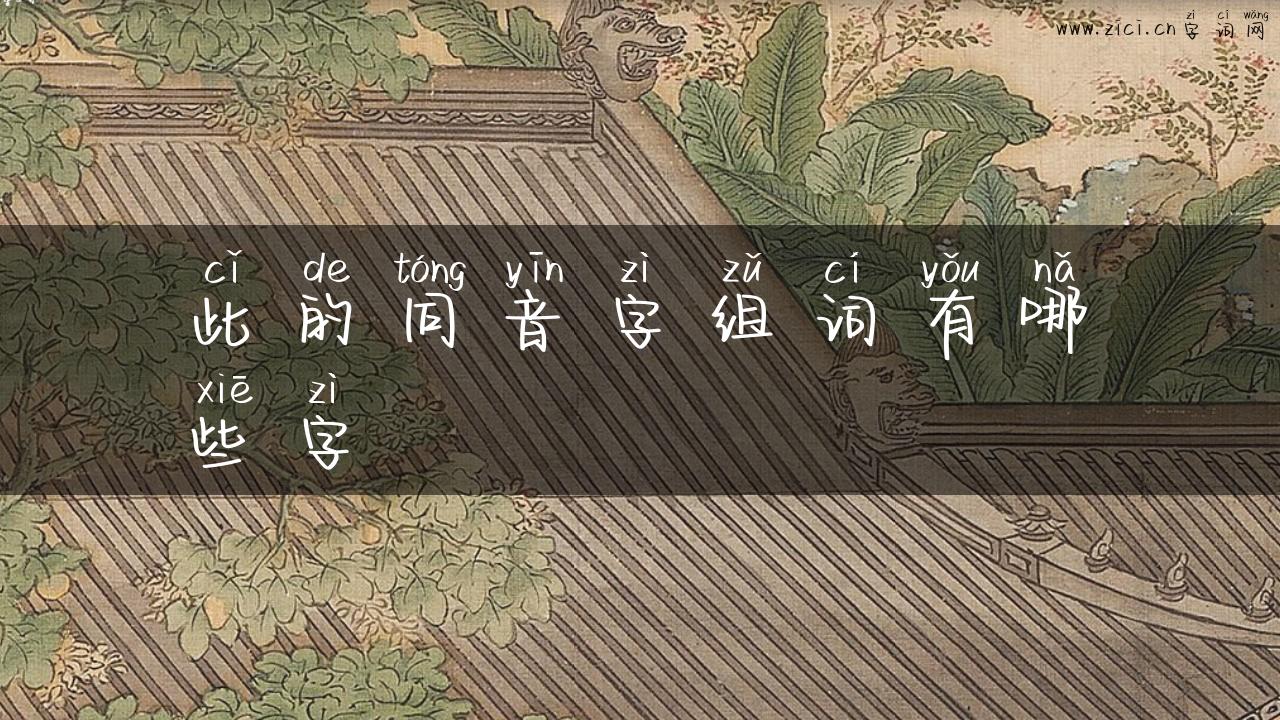 zì cí wǎng
www.zici.cn 字 词 网
cǐ de tóng yīn zì zǔ cí yǒu nǎ
此 的 同 音 字 组 词 有 哪
xiē zì
些 字